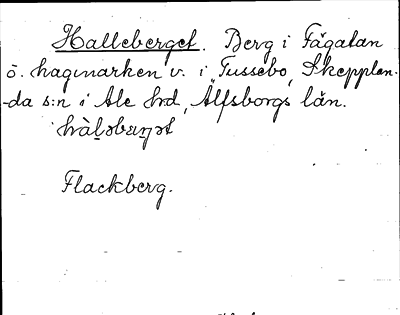 Halleberget. Berg i Fågatan
ö. hagmarken v. i Tussebo, Skepplan-
-da s:n i Ale hd, Älfsborgs län.
Flackberg.